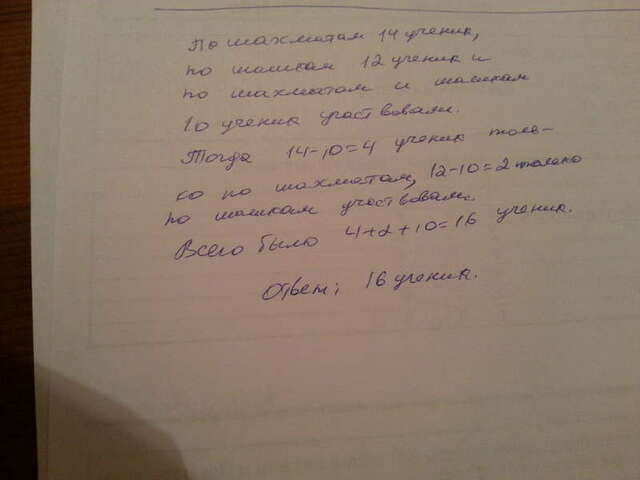 По шахматам 14 ученик,
по шашкам 12 ученик и
по шахматам и шашкам
10 ученик участвовали.
Тогда 14-10=4 ученик толь-
ко по шахматам, 12-10=2 только
по шашкам участвовали.
Всего было 4+2+10=16 ученик.
Ответ: 16 ученик.